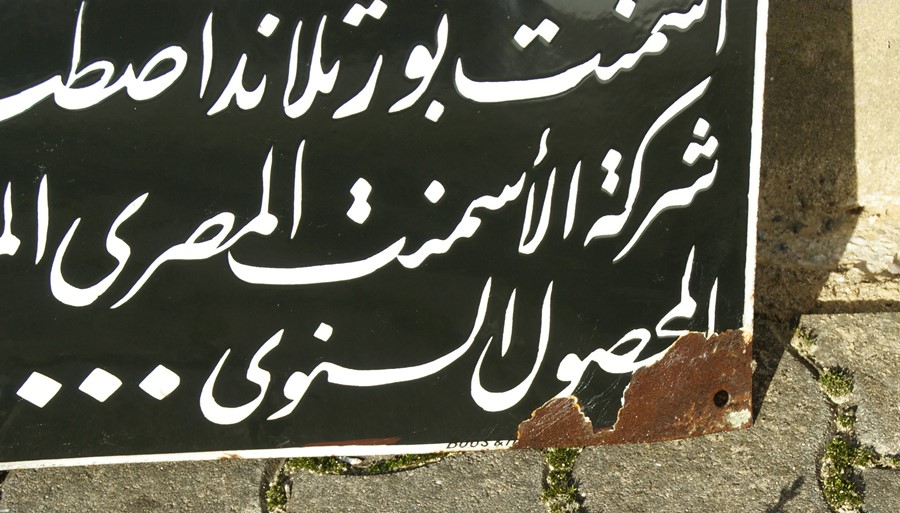 اسمنت بورتلاند اصط
شركة الأسمنت المصرى الم
المحصول السنوى ٠٠٠
BOOS & H